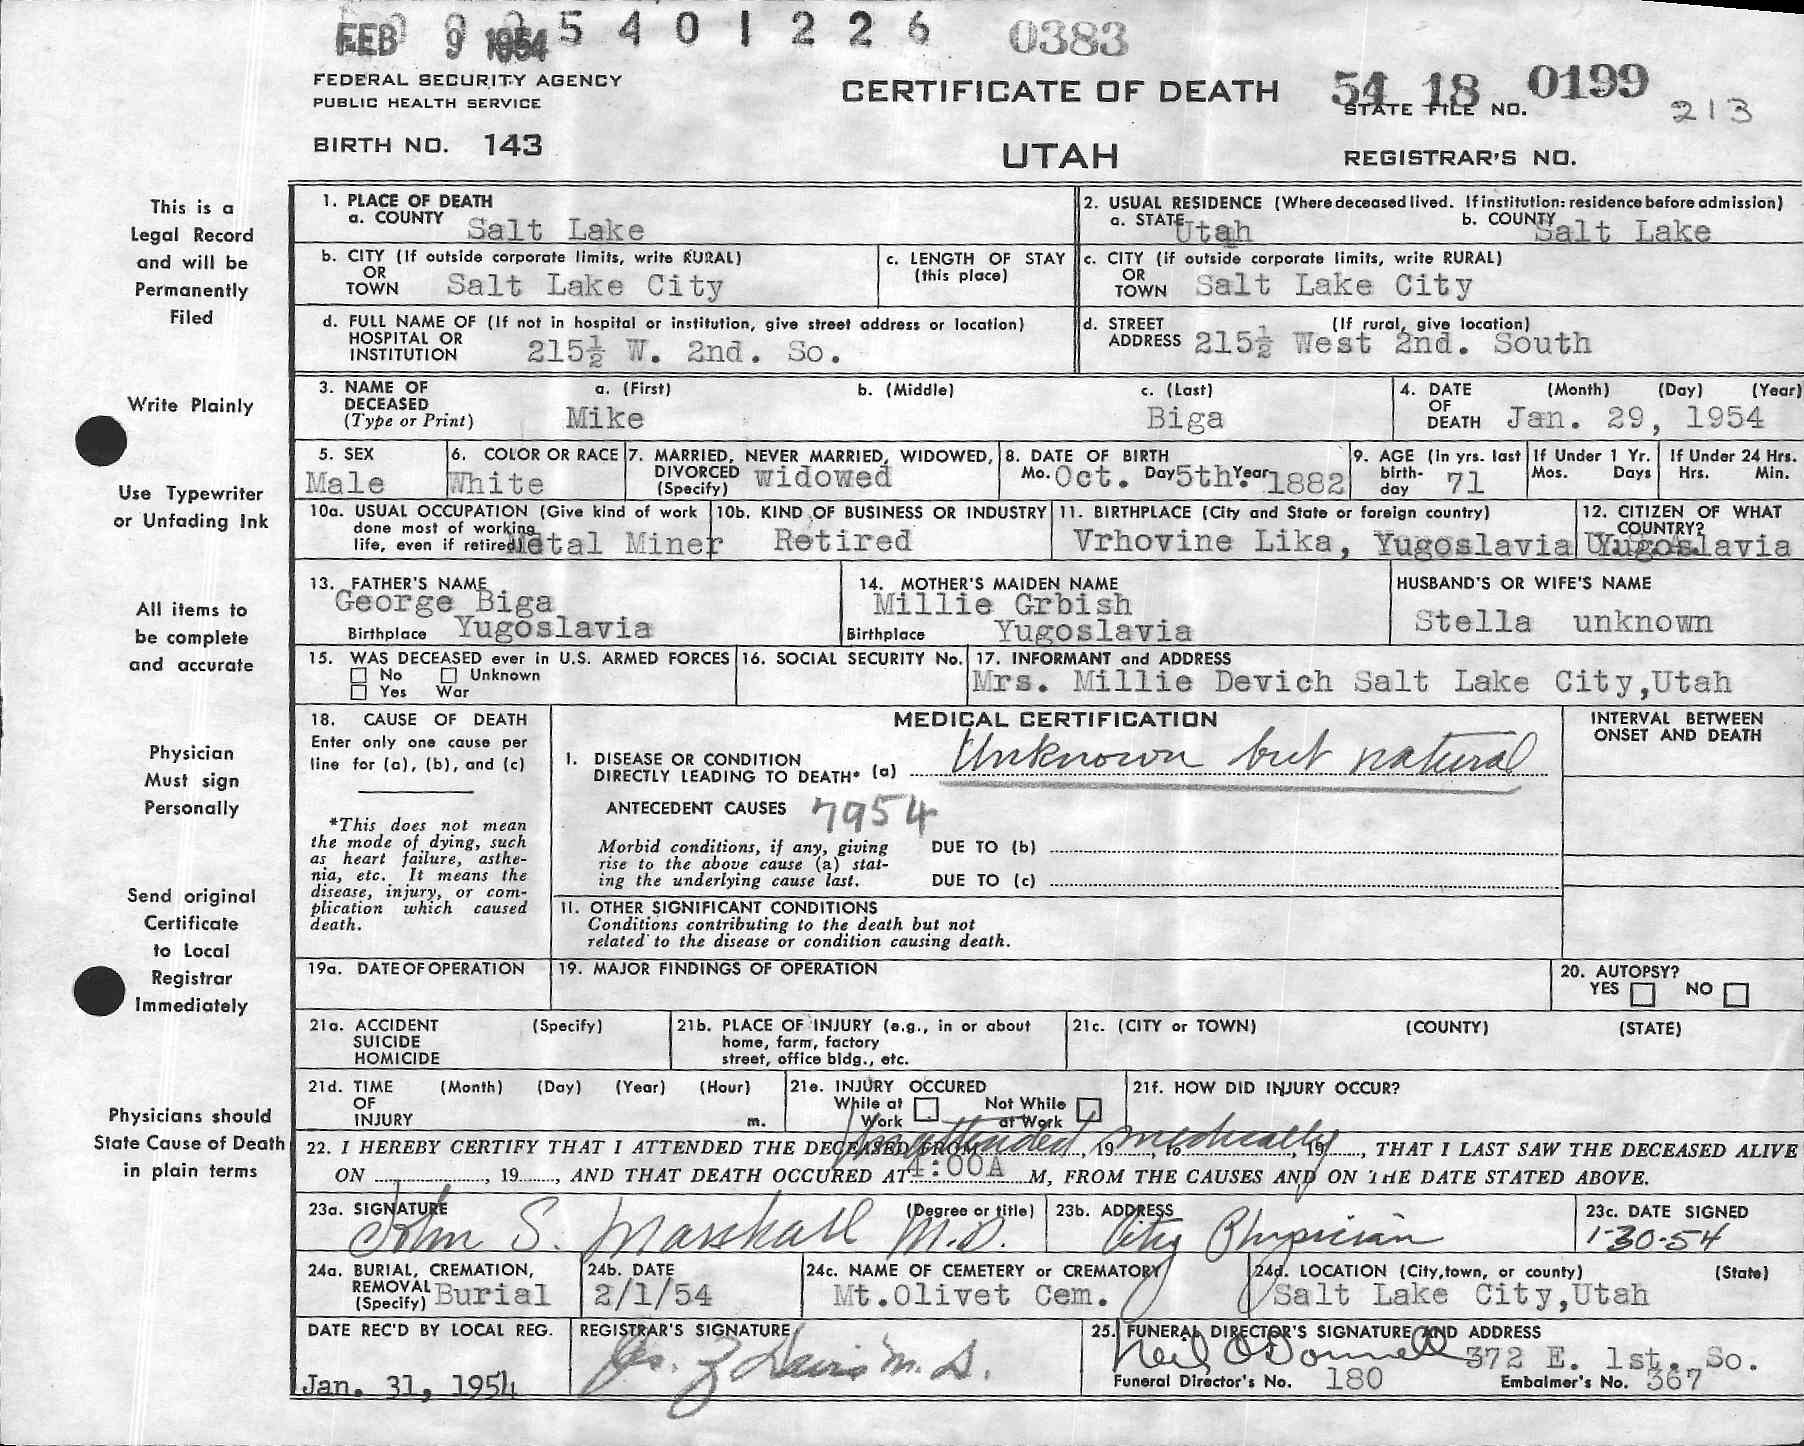 FEB 9 1954 5 4 0 1 2 2 6 0383
FEDERAL SECURITY AGENCY
PUBLIC HEALTH SERVICE
CERTIFICATE OF DEATH
54 18 0199
STATE FILE NO. 213
BIRTH NO. 143
UTAH
REGISTRAR'S NO.
This is a
Legal Record
and will be
Permanently
Filed
Write Plainly
Use Typewriter
or Unfading Ink
All items to
be complete
and accurate
Physician
Must sign
Personally
Send original
Certificate
to Local
Registrar
Immediately
Physicians should
State Cause of Death
in plain terms
1. PLACE OF DEATH
a. COUNTY Salt Lake
2. USUAL RESIDENCE (Where deceased lived. If institution: residence before admission)
a. STATE Utah b. COUNTY Salt Lake
b. CITY (If outside corporate limits, write RURAL)
OR
TOWN Salt Lake City
c. LENGTH OF STAY
(this place)
c. CITY (if outside corporate limits, write RURAL)
OR
TOWN Salt Lake City
d. FULL NAME OF (If not in hospital or institution, give street address or location)
HOSPITAL OR
INSTITUTION 215½ W. 2nd. So.
d. STREET (If rural, give location)
ADDRESS 215½ West 2nd. South
3. NAME OF a. (First) b. (Middle) c. (Last)
DECEASED
(Type or Print) Mike Biga
4. DATE (Month) (Day) (Year)
OF
DEATH Jan. 29, 1954
5. SEX
Male
6. COLOR OR RACE
White
7. MARRIED, NEVER MARRIED, WIDOWED,
DIVORCED widowed
(Specify)
8. DATE OF BIRTH
Mo. Oct. Day 5th. Year 1882
9. AGE (In yrs. last
birth-
day 71
If Under 1 Yr.
Mos. Days
If Under 24 Hrs.
Hrs. Min.
10a. USUAL OCCUPATION (Give kind of work
done most of working
life, even if retired) Metal Miner
10b. KIND OF BUSINESS OR INDUSTRY
Retired
11. BIRTHPLACE (City and State or foreign country)
Vrhovine Lika, Yugoslavia
12. CITIZEN OF WHAT
COUNTRY?
Yugoslavia
13. FATHER'S NAME
George Biga
Birthplace Yugoslavia
14. MOTHER'S MAIDEN NAME
Millie Grbish
Birthplace Yugoslavia
HUSBAND'S OR WIFE'S NAME
Stella unknown
15. WAS DECEASED ever in U.S. ARMED FORCES
No Unknown
Yes War
16. SOCIAL SECURITY No.
17. INFORMANT and ADDRESS
Mrs. Millie Devich Salt Lake City,Utah
18. CAUSE OF DEATH
Enter only one cause per
line for (a), (b), and (c)
*This does not mean
the mode of dying, such
as heart failure, asthe-
nia, etc. It means the
disease, injury, or com-
plication which caused
death.
MEDICAL CERTIFICATION
I. DISEASE OR CONDITION
DIRECTLY LEADING TO DEATH* (a) Unknown but natural
ANTECEDENT CAUSES 7954
Morbid conditions, if any, giving
rise to the above cause (a) stat-
ing the underlying cause last.
DUE TO (b)
DUE TO (c)
11. OTHER SIGNIFICANT CONDITIONS
Conditions contributing to the death but not
related to the disease or condition causing death.
INTERVAL BETWEEN
ONSET AND DEATH
19a. DATE OF OPERATION
19. MAJOR FINDINGS OF OPERATION
20. AUTOPSY?
YES NO
21a. ACCIDENT (Specify)
SUICIDE
HOMICIDE
21b. PLACE OF INJURY (e.g., in or about
home, farm, factory
street, office bldg., etc.
21c. (CITY or TOWN) (COUNTY) (STATE)
21d. TIME (Month) (Day) (Year) (Hour)
OF
INJURY m.
21e. INJURY OCCURED
While at Not While
Work at Work
21f. HOW DID INJURY OCCUR?
unattended medically
22. I HEREBY CERTIFY THAT I ATTENDED THE DECEASED FROM , 19 , to , 19 , THAT I LAST SAW THE DECEASED ALIVE
ON , 19 , AND THAT DEATH OCCURED AT 4:00A M, FROM THE CAUSES AND ON THE DATE STATED ABOVE.
23a. SIGNATURE (Degree or title)
John S. Marshall M.D.
23b. ADDRESS
City Physician
23c. DATE SIGNED
1-30-54
24a. BURIAL, CREMATION,
REMOVAL
(Specify) Burial
24b. DATE
2/1/54
24c. NAME OF CEMETERY or CREMATORY
Mt.Olivet Cem.
24d. LOCATION (City,town, or county) (State)
Salt Lake City,Utah
DATE REC'D BY LOCAL REG.
Jan. 31, 1954
REGISTRAR'S SIGNATURE
Davis M.D.
25. FUNERAL DIRECTOR'S SIGNATURE AND ADDRESS
Neil O'Donnell 372 E. 1st. So.
Funeral Director's No. 180 Embalmer's No. 367